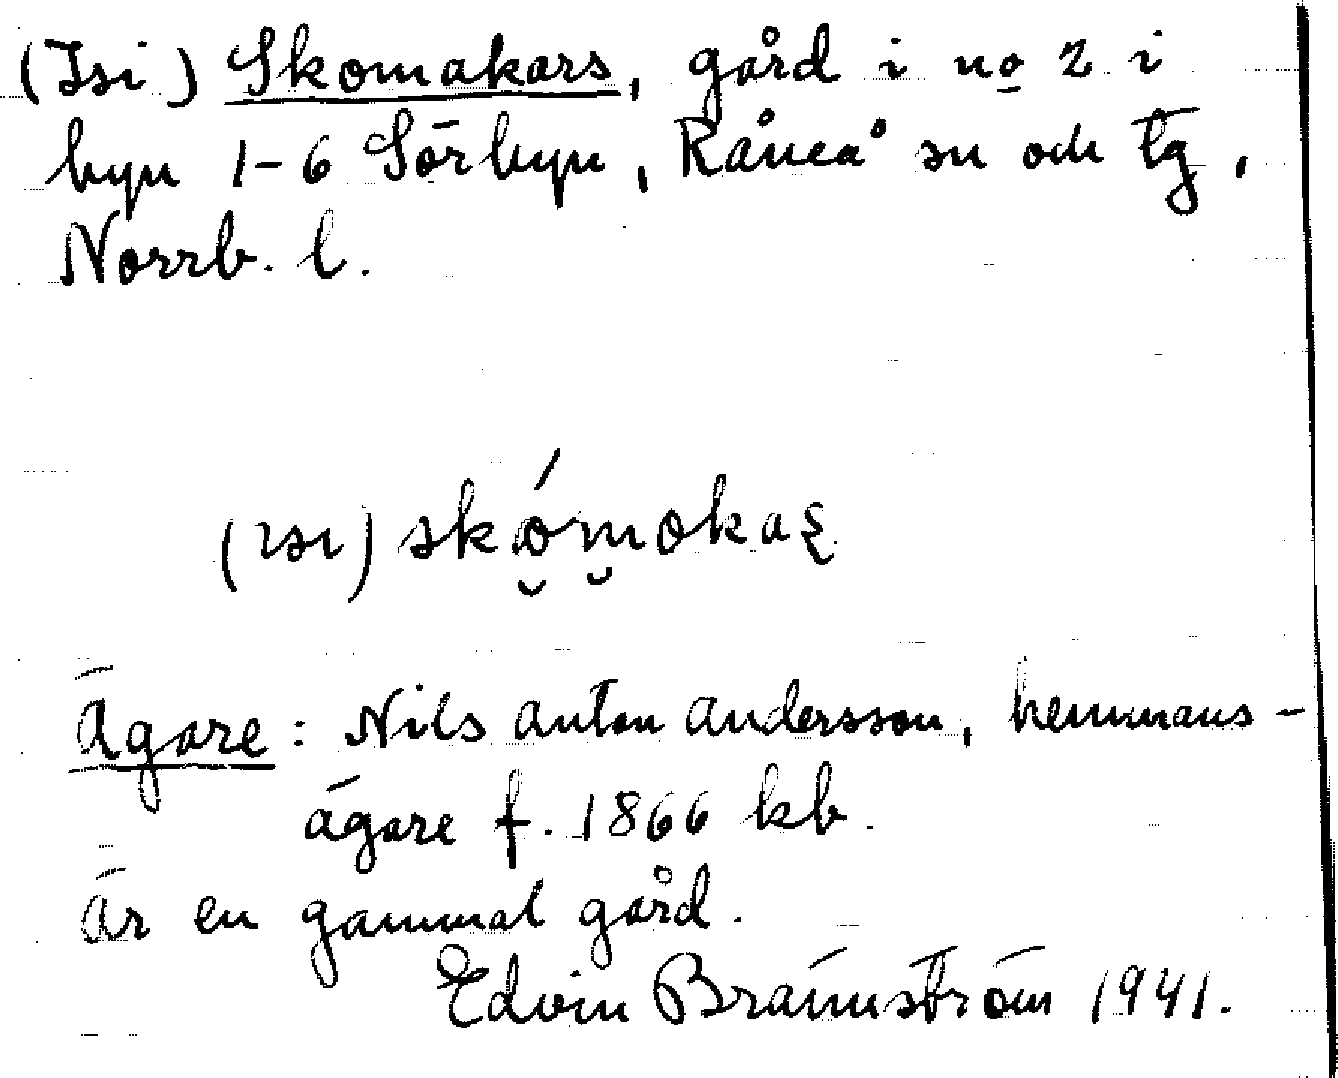 (Isi) Skomakars, gård i no 2 i
byn 1-6 Sörbyn, Råneå sn och tg,
Norrb. l.
(ısı) skó̮m̮okaʂ
Ägare: Nils Anton Andersson, hemmans-
ägare f. 1866 kb.
Är en gammal gård.
Edvin Brännström 1941.